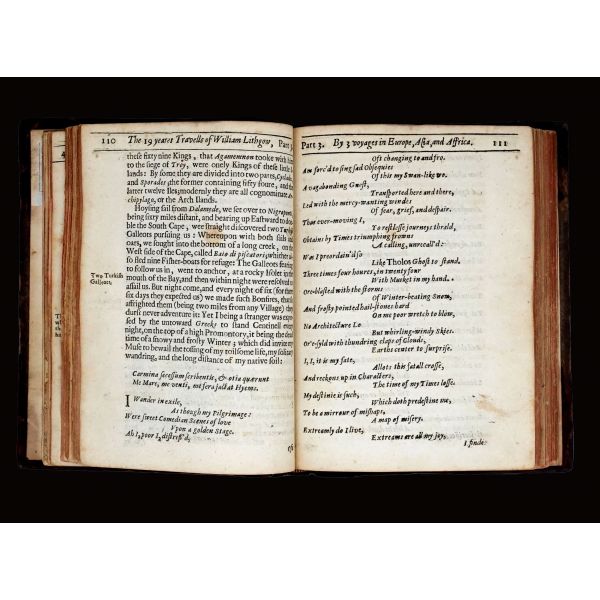 110 The 19 yeares Travells of William Lithgow, Part 3
these sixty nine Kings, that Agamemnon tooke with him
to the siege of Troy, were onely Kings of these little I-
lands: By some they are divided into two parts, Cyclades
and Sporades; the former containing fifty foure, and the
latter twelve Iles; modernly they are all cognominate Ar-
chipelago, or the Arch Ilands.
Hoysing sail from Dalamede, we set over to Nigropont,
being sixty miles distant, and bearing up Eastward to dou-
ble the South Cape, we straight discovered two Turkish
Galleots pursuing us: Whereupon with both sails and
oars, we sought into the bottom of a long creek, on the
West side of the Cape, called Baio di piscatori; whither al-
so fled nine Fisher-boats for refuge: The Galleots fearing
to follow us in, went to anchor, at a rocky Isolet in the
mouth of the Bay, and then within night were resolved to
assail us. But night come, and every night of six (for
six days they expected us) we made such Bonfires, that
affrighted them (being two miles from any Village) they
durst never adventure it: Yet I being a stranger was expo-
sed by the untoward Greeks to stand Centinell every
night, on the top of a high Promontory, it being the dead
time of a snowy and frosty Winter; which did invite my
Muse to bewail the tossing of my toilsome life, my solitary
wandring, and the long distance of my native soil:
Two Turkish
Galleots,
Carmina secessum scribentis, & otia quærunt
Me Mare, me venti, me fera jactat Hyems.
I Wander in exile,
As though my Pilgrimage:
Were sweet Comedian Scenes of love
Vpon a golden Stage.
Ah I, poor I, distress'd,
Part 3. By 3 voyages in Europe, Asia, and Affrica. 111
Oft changing to and fro.
Am forc'd to sing sad Obsequies
Of this my Swan-like wo.
A vagabonding Guest,
Transported here and there,
Led with the mercy-wanting windes
Of fear, grief, and despair.
Thus ever-moving I,
To restlesse journeys thrald,
Obtains by Times triumphing frowns
A calling, unrecall'd:
Was I preordain'd so
Like Tholos Ghost to stand.
Three times four houres, in twenty four
With Musket in my hand.
Ore-blasted with the storms
Of Winter-beating Snow,
And frosty pointed hail-stones hard
On me poor wretch to blow,
No Architecture Lo
But whirling-windy Skies.
Or'e-syld with thundring claps of Clouds,
Earths center to surprise.
I, I, it is my fate,
Allots this fatall crosse,
And reckons up in Characters,
The time of my Times losse.
My destinie is such,
Which doth predestine me,
To be a mirrour of mishaps,
A map of misery.
Extreamly do I live,
Extreams are all my joy,
I finde